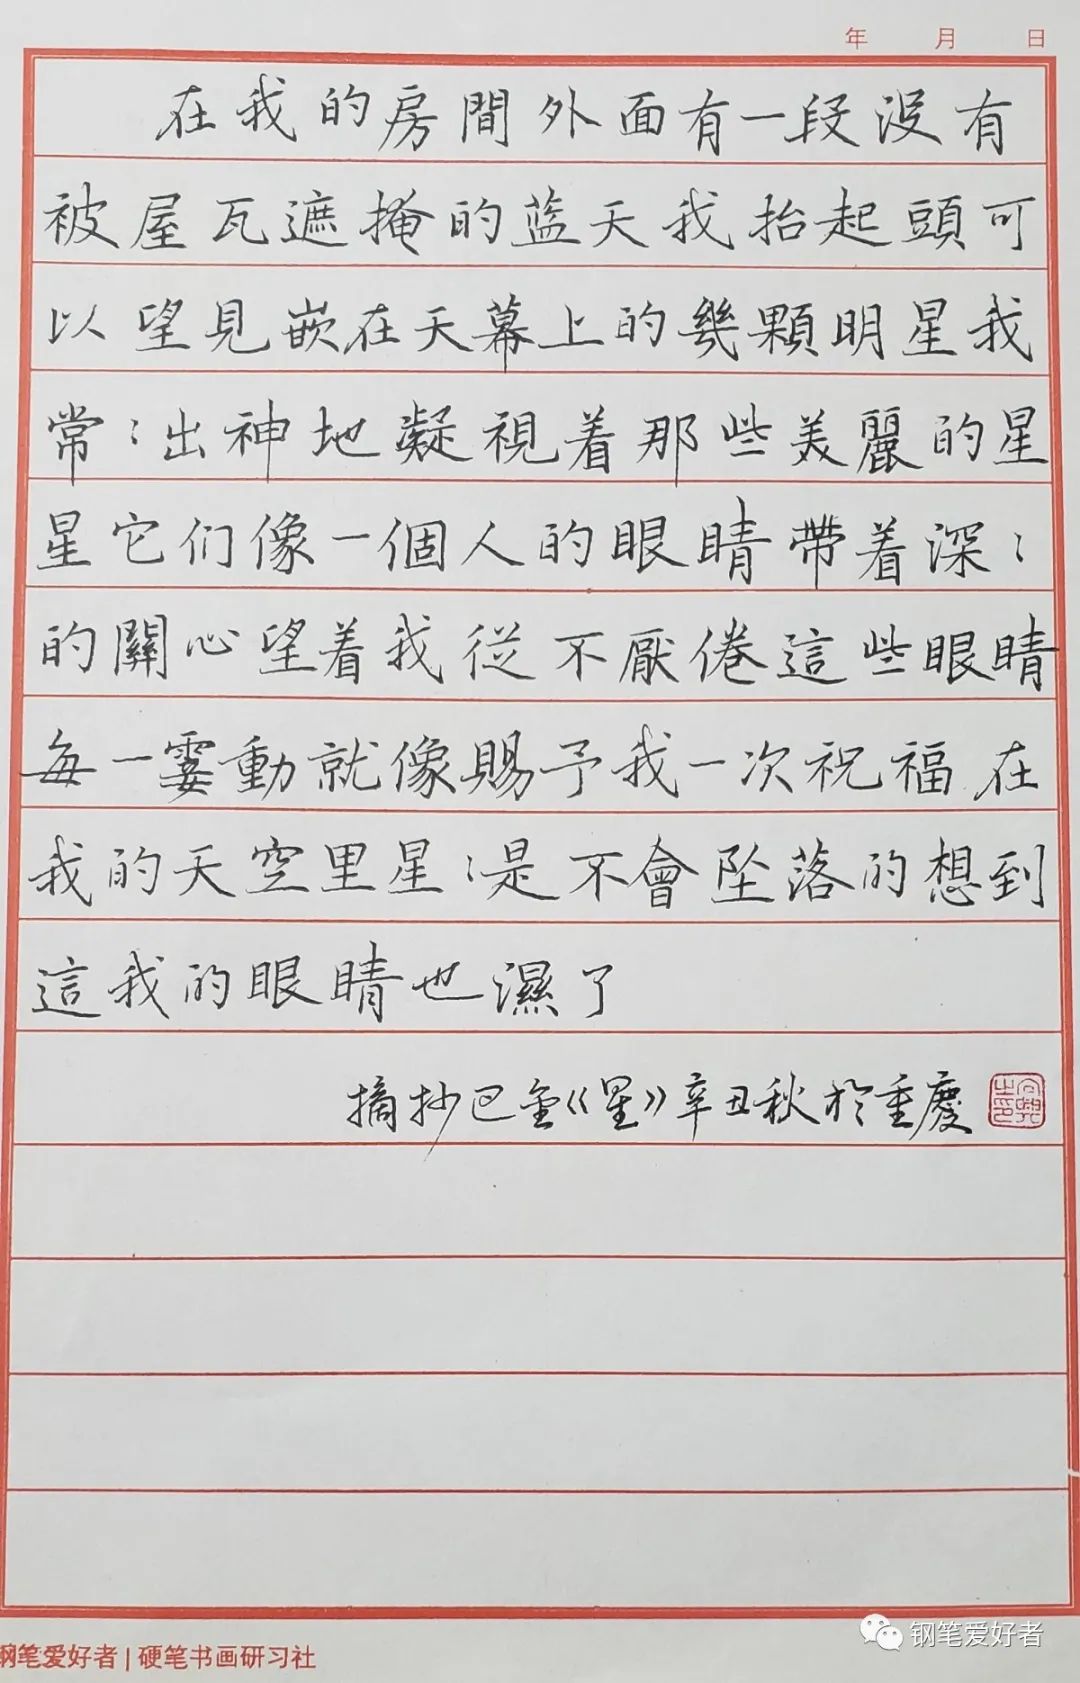 年 月 日
在我的房間外面有一段没有
被屋瓦遮掩的蓝天我抬起頭可
以望見嵌在天幕上的幾顆明星我
常:出神地凝視着那些美麗的星
星它们像一個人的眼睛帶着深:
的關心望着我從不厭倦這些眼睛
每一霎動就像賜予我一次祝福在
我的天空里星:是不會坠落的想到
這我的眼睛也濕了
摘抄巴金《星》辛丑秋於重慶
钢笔爱好者
钢笔爱好者 | 硬笔书画研习社